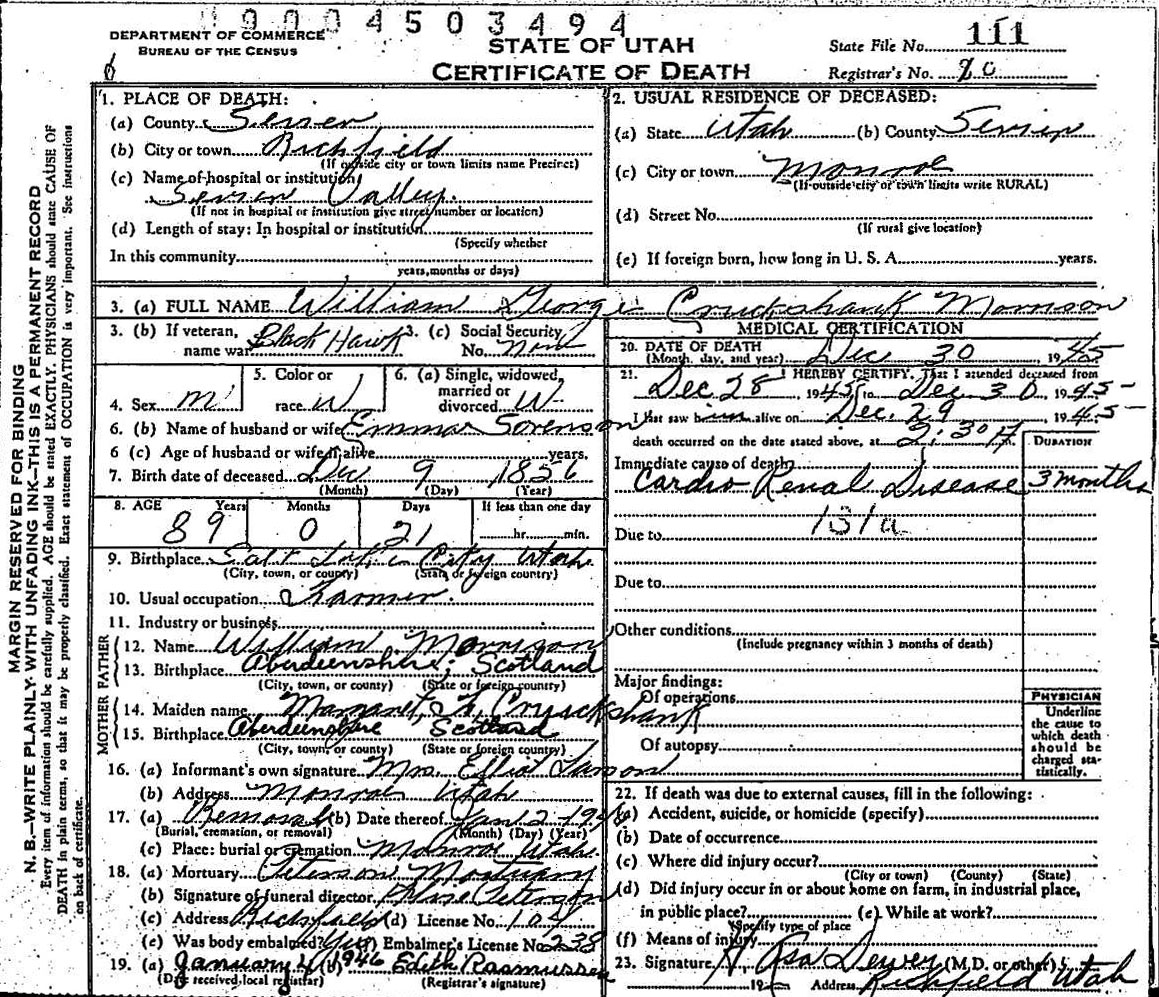 0 9 0 0 4 5 0 3 4 9 4
DEPARTMENT OF COMMERCE
BUREAU OF THE CENSUS
STATE OF UTAH
CERTIFICATE OF DEATH
State File No. 111
Registrar's No. 70
MARGIN RESERVED FOR BINDING
N. B.—WRITE PLAINLY, WITH UNFADING INK—THIS IS A PERMANENT RECORD
Every item of information should be carefully supplied. AGE should be stated EXACTLY. PHYSICIANS should state CAUSE OF
DEATH in plain terms, so that it may be properly classified. Exact statement of OCCUPATION is very important. See instructions
on back of certificate.
1. PLACE OF DEATH:
(a) County Sevier
(b) City or town Richfield
(If outside city or town limits name Precinct)
(c) Name of hospital or institution
Sevier Valley
(If not in hospital or institution give street number or location)
(d) Length of stay: In hospital or institution
(Specify whether
In this community
years, months or days)
2. USUAL RESIDENCE OF DECEASED:
(a) State Utah (b) County Sevier
(c) City or town Monroe
(If outside city or town limits write RURAL)
(d) Street No.
(If rural give location)
(e) If foreign born, how long in U. S. A. years.
3. (a) FULL NAME William George Cruckshank Morrison
3. (b) If veteran, name war Black Hawk 3. (c) Social Security No. None
4. Sex M 5. Color or race W 6. (a) Single, widowed, married or divorced W
6. (b) Name of husband or wife Emma Sorenson
6 (c) Age of husband or wife if alive years.
7. Birth date of deceased Dec 9 1856
(Month) (Day) (Year)
8. AGE Years Months Days If less than one day
89 0 21 hr. min.
9. Birthplace Salt Lake City Utah
(City, town, or county) (State or foreign country)
10. Usual occupation Farmer.
11. Industry or business
FATHER
12. Name William Morrison
13. Birthplace Aberdeenshire; Scotland
(City, town, or county) (State or foreign country)
MOTHER
14. Maiden name Margaret Cruickshank
15. Birthplace Aberdeenshire Scotland
(City, town, or county) (State or foreign country)
16. (a) Informant's own signature Mrs. Elliot Larson
(b) Address Monroe Utah
17. (a) Removal (b) Date thereof Jan 2 1946
(Burial, cremation, or removal) (Month) (Day) (Year)
(c) Place: burial or cremation Monroe Utah.
18. (a) Mortuary Peterson Mortuary
(b) Signature of funeral director Peterson
(c) Address Richfield (d) License No. 104
(e) Was body embalmed? Yes (f) Embalmer's License No. 238
19. (a) January 1946 (b) Edith Rasmussen
(Date received local registrar) (Registrar's signature)
MEDICAL CERTIFICATION
20. DATE OF DEATH
(Month, day, and year) Dec 30 1945
21. I HEREBY CERTIFY, That I attended deceased from
Dec. 28, 1945 to Dec 30, 1945
I last saw him alive on Dec. 29 1945
death occurred on the date stated above, at 2:30
DURATION
Immediate cause of death
Cardio Renal Disease 3 months
131a
Due to
Due to
Other conditions
(Include pregnancy within 3 months of death)
Major findings:
Of operations
Of autopsy
PHYSICIAN
Underline
the cause to
which death
should be
charged sta-
tistically.
22. If death was due to external causes, fill in the following:
(a) Accident, suicide, or homicide (specify)
(b) Date of occurrence
(c) Where did injury occur?
(City or town) (County) (State)
(d) Did injury occur in or about home on farm, in industrial place,
in public place? (e) While at work?
(Specify type of place
(f) Means of injury
23. Signature Asa Dewey (M.D. or other)
19 Address Richfield Utah